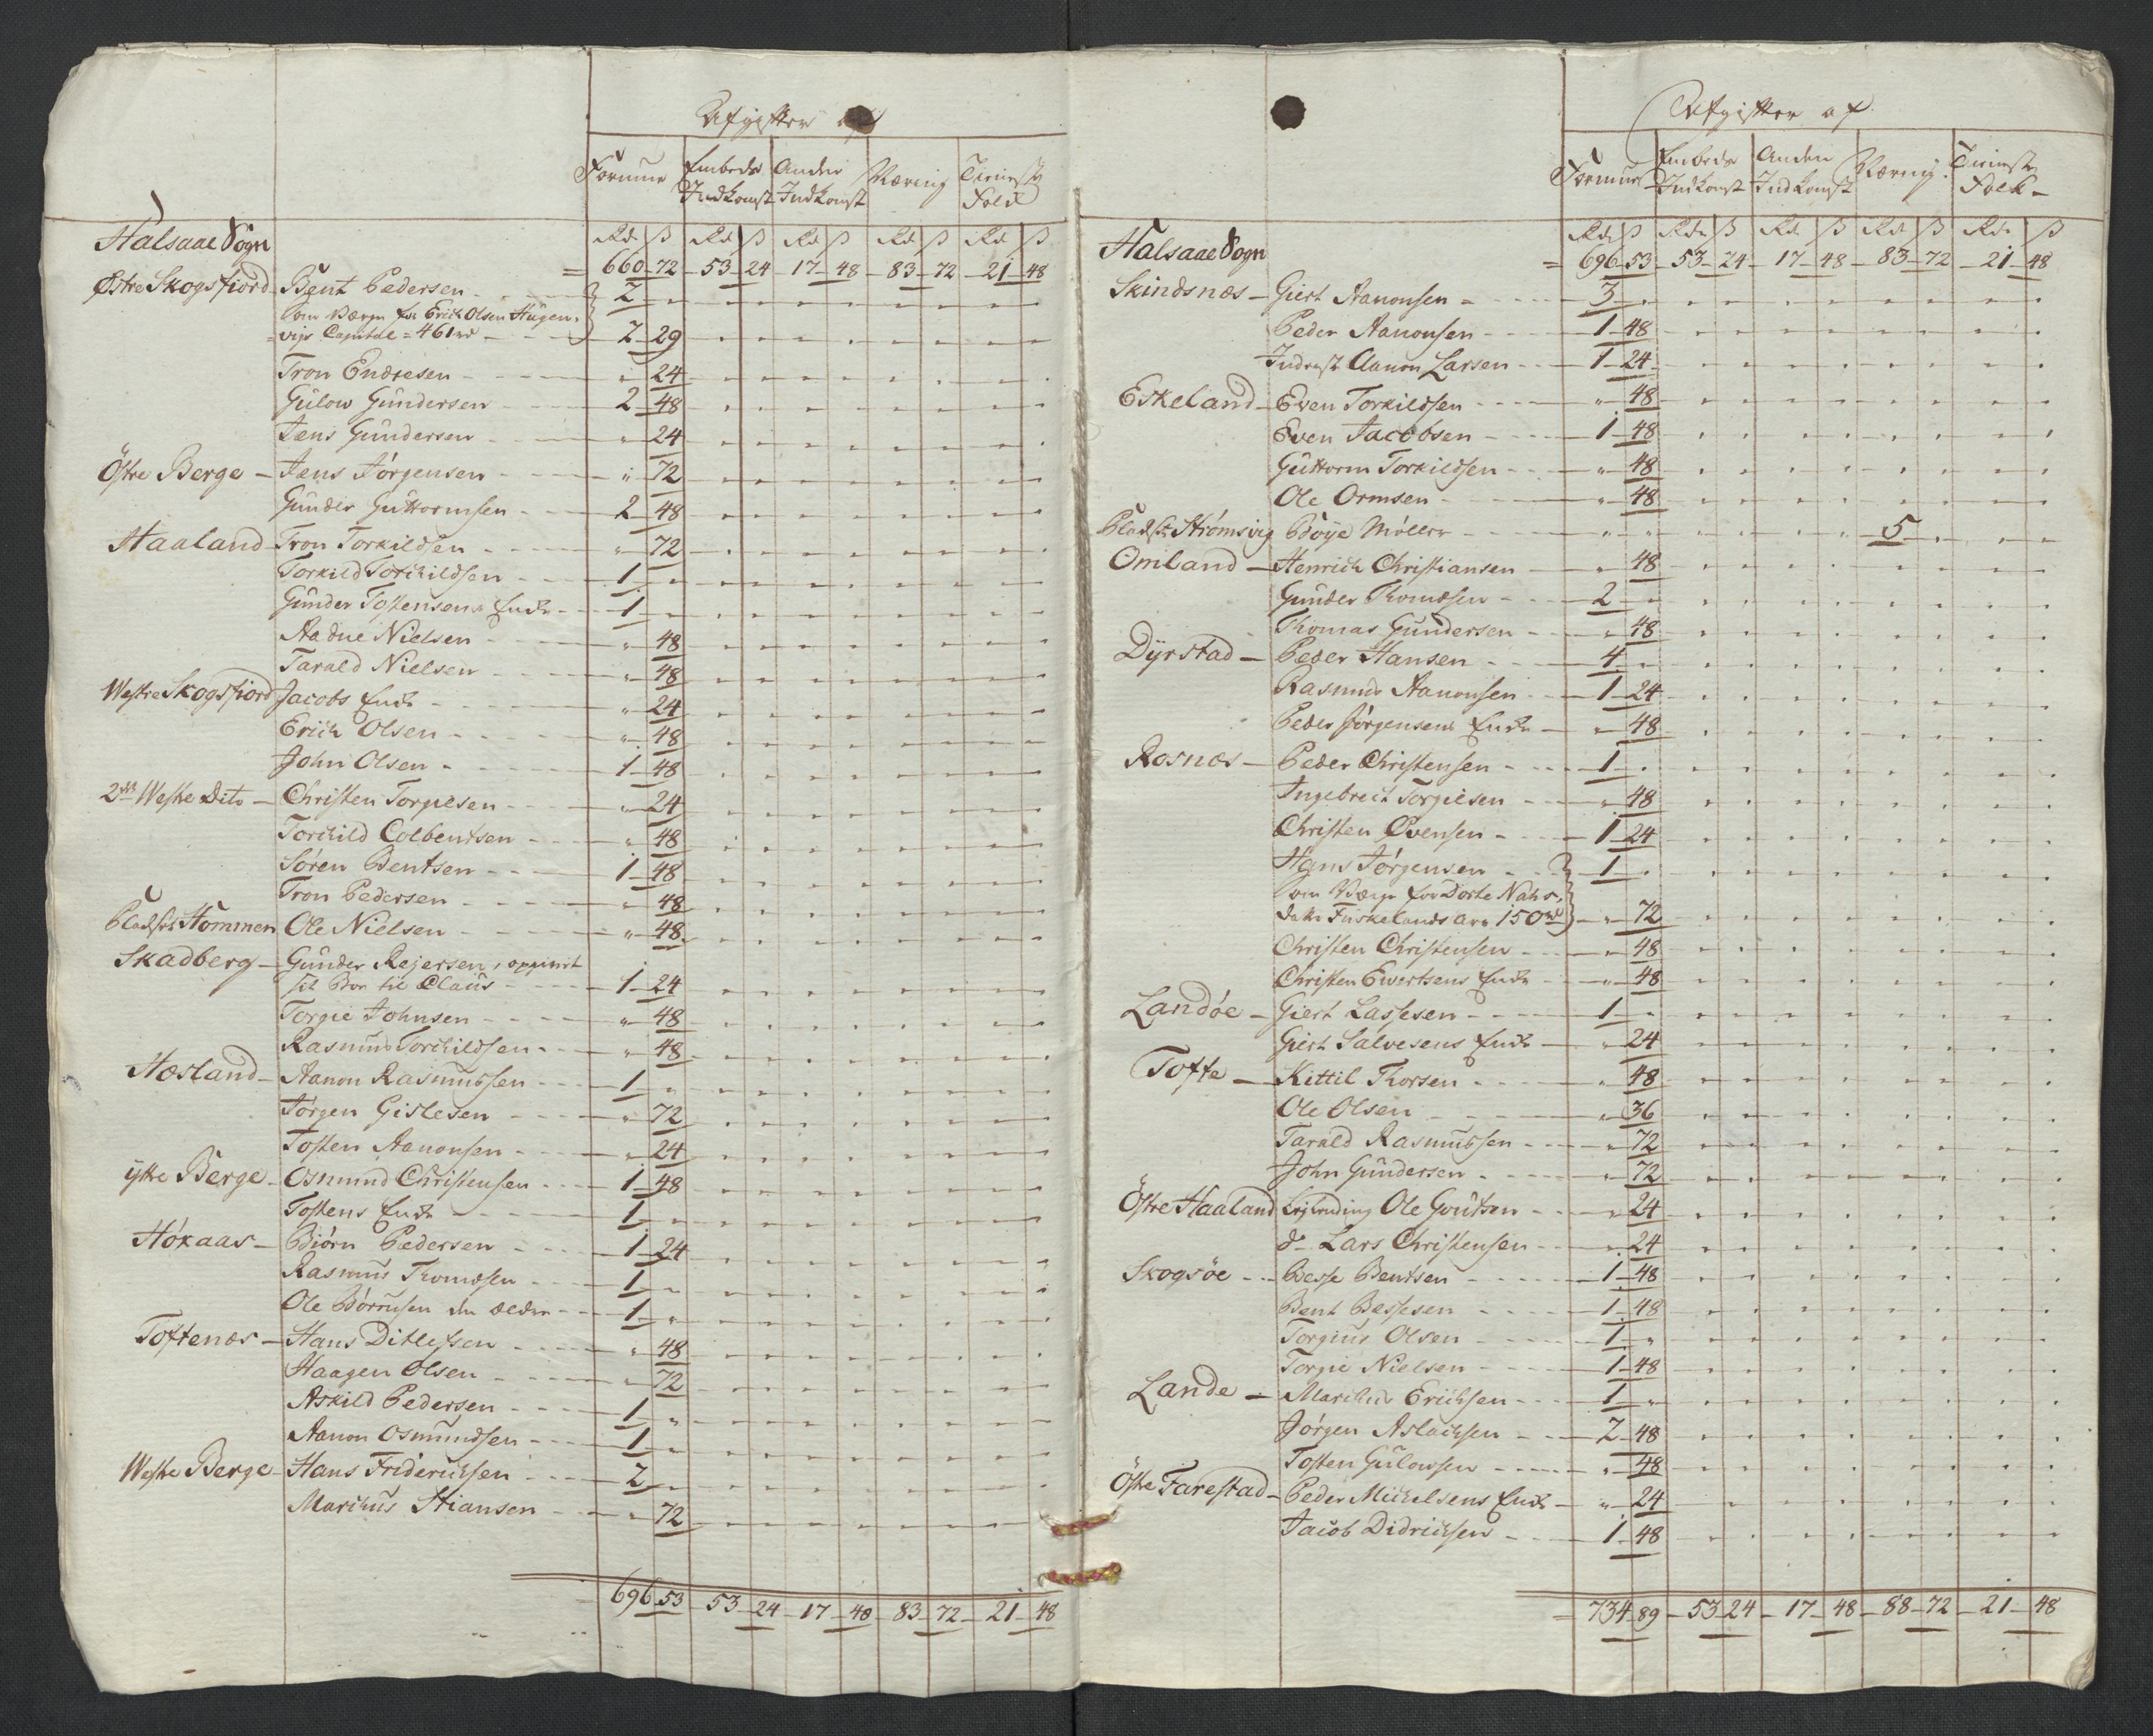 Afgifter af
Formue Embeds Indkomst Anden Indkomst Næring Tieniste Folk
Halsaae Sogn Rd ß Rd ß Rd ß Rd ß Rd ß
= 660-72-53-24-17-48-83-72-21-48
Østre Skogsfiord Bent Pedersen 2 "
som Værge for Erich Olsen Haagen-
vigs Capital = 461 rd 2-29
Tron Endresen " 24
Gulow Gundersen 2 48
Jens Gundersen " 24
Östre Berge - Jens Jörgensen " 72
Gunder Guttormsen 2 48
Haaland Tron Torkildsen " 72
Torkild Torkildsen 1 "
Gunder Tostensens Enke 1 "
Aadne Nielsen " 48
Tarald Nielsen " 48
Westre Skogsfiord Jacobs Enke " 24
Erich Olsen " 48
John Olsen 1 48
2de Westre Dito - Christen Torgiesen " 24
Torchild Colbentsen " 48
Sören Bentsen 1 48
Tron Pedersen " 48
Pladset Hommen Ole Nielsen " 48
Skadberg - Gunder Rejersen,
til Claus 1-24
Torgie Johnsen " 48
Rasmus Torchildsen " 48
Hæsland - Aanon Rasmussen 1 "
Jörgen Gislesen " 72
Tosten Aanonsen " 24
ytre Berge - Osmund Christensen 1-48
Tostens Enke 1 "
Høkaas - Biörn Pedersen 1-24
Rasmus Thomesen 1 "
Ole Börrusen den ældre 1 "
Toftenæs - Hans Ditlefsen " 48
Haagen Olsen " 72
Askild Pedersen 1 "
Aanon Osmundsen 1 "
Westre Berge - Hans Friderichsen 2 "
Marchus Stiansen " 72
696 53-53-24-17-48-83-72-21-48
Afgifter af
Formue Embeds Indkomst Anden Indkomst Næring Tieniste Folk
Halsaae Sogn Rd ß Rd ß Rd ß Rd ß Rd ß
= 696 53-53-24-17-48-83-72-21-48
Skindsnæs - Giert Aanonsen 3 "
Peder Aanonsen 1 48
Inderst Aanon Larsen 1 24
Eskeland - Even Torkildsen " 48
Even Jacobsen 1 48
Guttorm Torkildsen " 48
Ole Ormsen " 48
Pladset Strömsvig Böije Möller 5
Omland - Henrich Christiansen " 48
Gunder Thomesen 2 "
Thomas Gundersen " 48
Dyrstad - Peder Hansen 4 "
Rasmus Aanonsen 1 24
Peder Jörgensens Enke " 48
Rosnæs - Peder Christensen 1 "
Ingebrect Torgiesen " 48
Christen Evensen 1 24
Hans Jörgensen 1 "
som Værge for Dorte Nahs-
datter Fuskelands arv 150 rd " 72
Christen Christensen " 48
Christen Ewertsens Enke " 48
Landöe - Giert Lassesen 1 "
Giert Salvesens Enke " 24
Tofte - Kittil Thorsen " 48
Ole Olsen " 36
Tarald Rasmussen " 72
John Gundersen " 72
Östre Haaland Ole Govtsen " 24
do Lars Christensen " 24
Skogsöe - Besse Bentsen 1 48
Bent Bessesen 1 48
Torgius Olsen 1 "
Torgie Nielsen 1 48
Lande - Marchus Erichsen 1 "
Jörgen Aslachsen 2 48
Tosten Gulowsen " 48
Östre Farestad - Peder Michelsens Enke " 24
Jacob Didrichsen 1 48
= 734 89-53 24-17-48-88-72-21-48